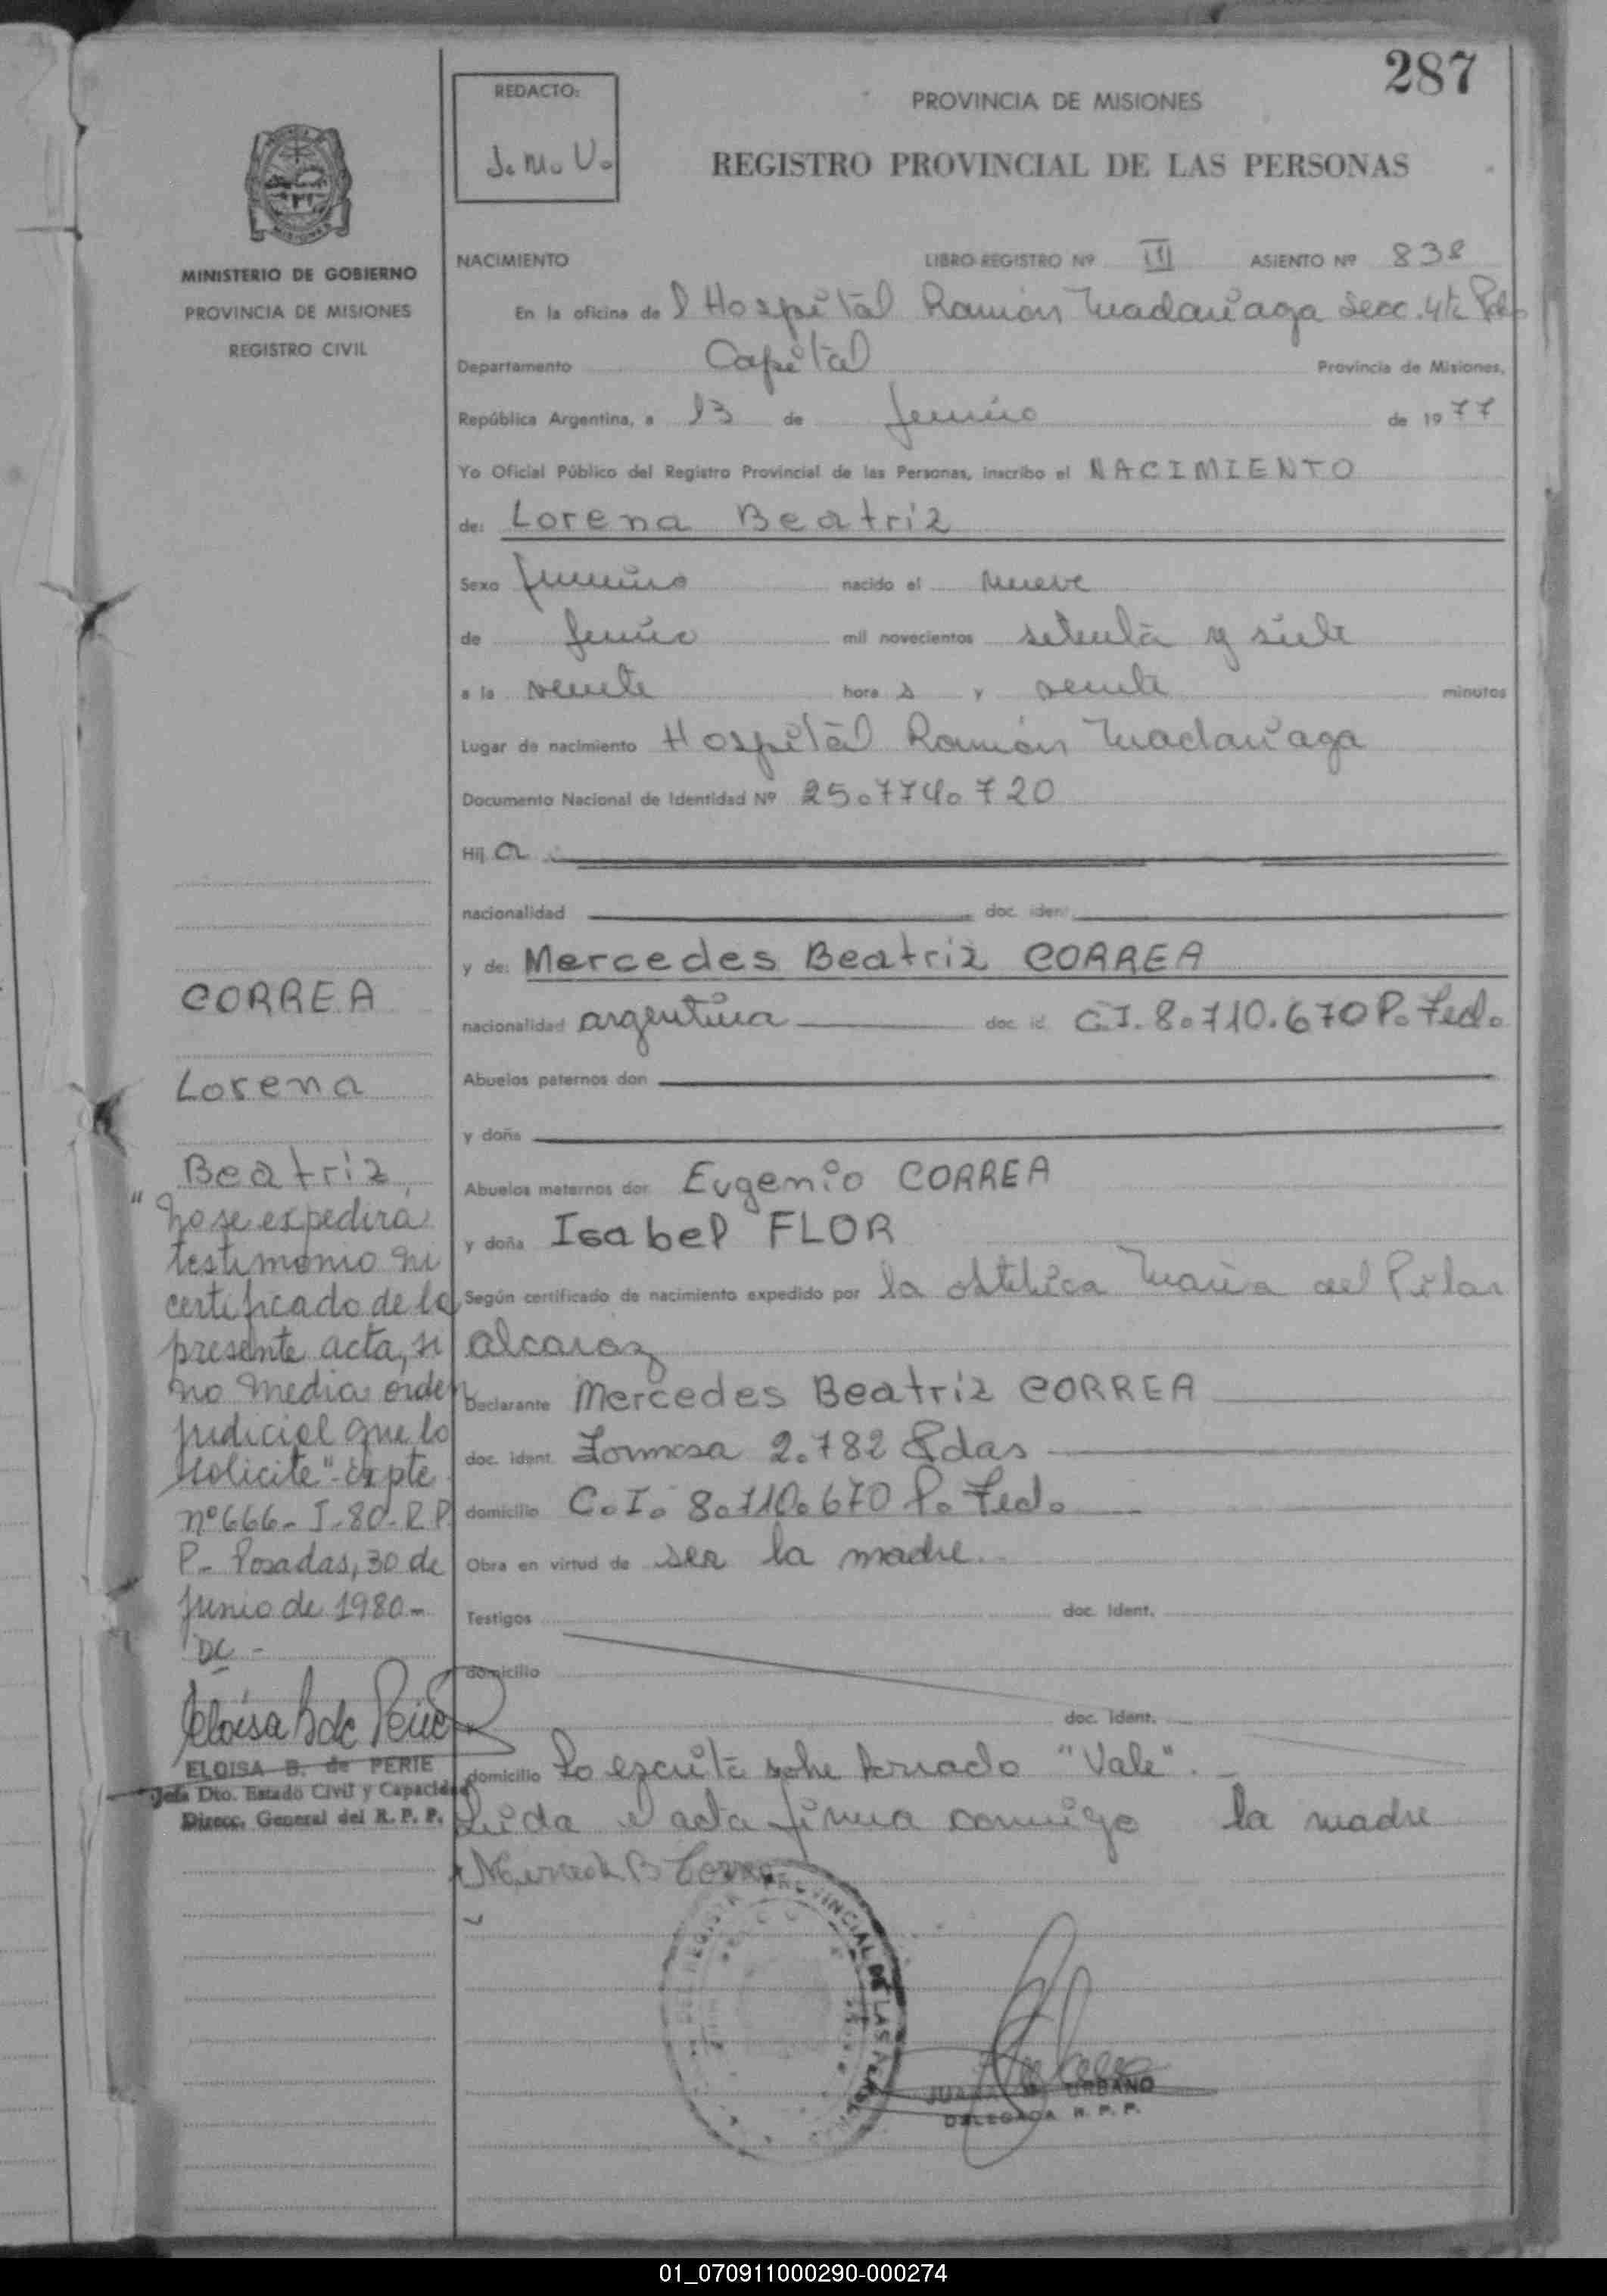 287
REDACTO:
J. M. U.
PROVINCIA DE MISIONES
REGISTRO PROVINCIAL DE LAS PERSONAS
MISIONES
MINISTERIO DE GOBIERNO
PROVINCIA DE MISIONES
REGISTRO CIVIL
NACIMIENTO LIBRO REGISTRO Nº III ASIENTO Nº 838
En la oficina de l Hospital Ramón Madariaga Secc. 4ta
Departamento Capital Provincia de Misiones,
República Argentina, a 13 de junio de 1977
Yo Oficial Público del Registro Provincial de las Personas, inscribo el NACIMIENTO
de: Lorena Beatriz
Sexo femenino nacido el nueve
de junio mil novecientos setenta y siete
a la veinte hora s y veinte minutos
Lugar de nacimiento Hospital Ramón Madariaga
Documento Nacional de Identidad Nº 25.774.720
Hij a
nacionalidad doc. ident.
y de: Mercedes Beatriz CORREA
nacionalidad argentina doc. id. C.I. 8.710.670 P. Fed.
Abuelos paternos don
y doña
Abuelos maternos don Eugenio CORREA
y doña Isabel FLOR
Según certificado de nacimiento expedido por la obstétrica María del Pilar
Alcaraz
Declarante Mercedes Beatriz CORREA
doc. ident. Formosa 2.782 Pdas
domicilio C.I. 8.710.670 P. Fed.
Obra en virtud de ser la madre.
Testigos doc. Ident.
domicilio
doc. Ident.
domicilio Lo escrito sobre borrado "Vale".
Leida el acta firma conmigo la madre
Mercedes B Correa
CORREA
Lorena
Beatriz
"No se expedirá
testimonio ni
certificado de la
presente acta, si
no media orden
judicial que lo
solicite" - Expte
nº 666 - I - 80 - R.P.
P - Posadas, 30 de
junio de 1980 -
DC -
Eloisa B de Perié
ELOISA B. de PERIE
Jefa Dto. Estado Civil y Capacidad
Direcc. General del R. P. P.
PROVINCIAL DE LAS
JUANA M. URBANO
DELEGADA R. P. P.
01_070911000290-000274